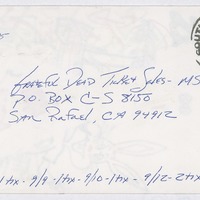 Grateful Dead Ticket Sales - MS
P.O. Box C-S 8150
San Rafael, CA 94912
1tix - 9/9 - 1tix - 9/10 - 1tix - 9/12 - 2tix